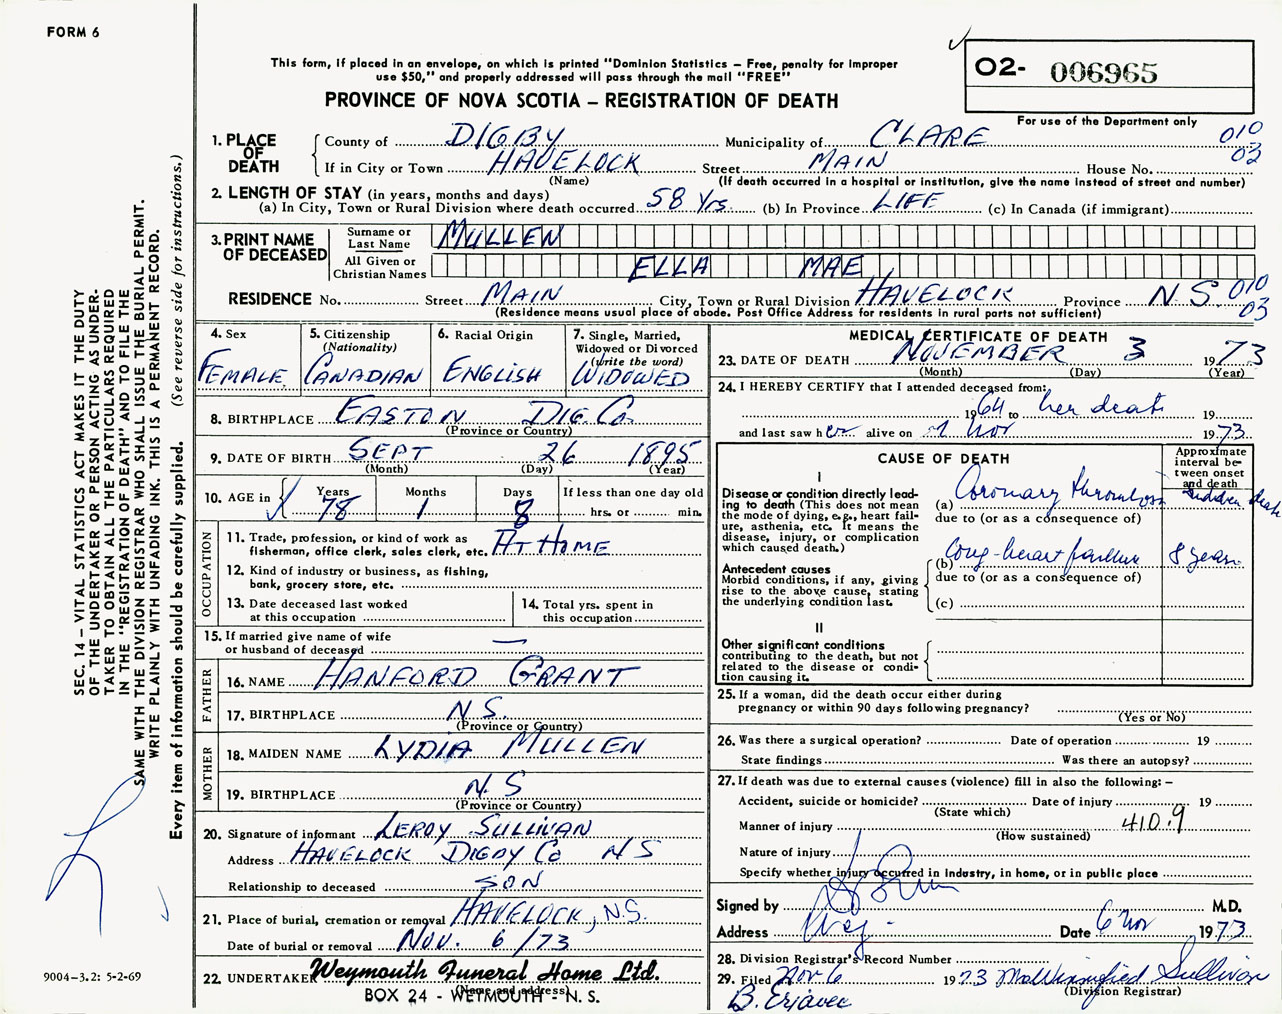 FORM 6
This form, if placed in an envelope, on which is printed "Dominion Statistics – Free, penalty for improper
use $50," and properly addressed will pass through the mail "FREE"
PROVINCE OF NOVA SCOTIA – REGISTRATION OF DEATH
02- 006965
For use of the Department only
1. PLACE OF DEATH
County of DIGBY Municipality of CLARE 010
If in City or Town HAVELOCK Street MAIN House No. 03
(Name) (If death occurred in a hospital or institution, give the name instead of street and number)
2. LENGTH OF STAY (in years, months and days)
(a) In City, Town or Rural Division where death occurred 58 Yrs. (b) In Province LIFE (c) In Canada (if immigrant)
3. PRINT NAME OF DECEASED
Surname or Last Name MULLEN
All Given or Christian Names ELLA MAE
RESIDENCE No. Street MAIN City, Town or Rural Division HAVELOCK Province N.S. 010
(Residence means usual place of abode. Post Office Address for residents in rural parts not sufficient) 03
4. Sex FEMALE
5. Citizenship (Nationality) CANADIAN
6. Racial Origin ENGLISH
7. Single, Married, Widowed or Divorced (write the word) WIDOWED
8. BIRTHPLACE EASTON DIG. Co.
(Province or Country)
9. DATE OF BIRTH SEPT 26 1895
(Month) (Day) (Year)
10. AGE in Years 78 Months 1 Days 8 If less than one day old
hrs. or min.
OCCUPATION
11. Trade, profession, or kind of work as fisherman, office clerk, sales clerk, etc. AT HOME
12. Kind of industry or business, as fishing, bank, grocery store, etc.
13. Date deceased last worked at this occupation
14. Total yrs. spent in this occupation
15. If married give name of wife or husband of deceased —
FATHER
16. NAME HANFORD GRANT
17. BIRTHPLACE N.S.
(Province or Country)
MOTHER
18. MAIDEN NAME LYDIA MULLEN
19. BIRTHPLACE N.S
(Province or Country)
20. Signature of informant LEROY SULLIVAN
Address HAVELOCK DIGBY Co N S
Relationship to deceased SON
21. Place of burial, cremation or removal HAVELOCK, N.S.
Date of burial or removal NOV. 6/73
22. UNDERTAKER Weymouth Funeral Home Ltd.
(Name and address)
BOX 24 - WEYMOUTH - N. S.
MEDICAL CERTIFICATE OF DEATH
23. DATE OF DEATH NOVEMBER 3 1973
(Month) (Day) (Year)
24. I HEREBY CERTIFY that I attended deceased from:
1964 to her death 19
and last saw her alive on Nov 1973
CAUSE OF DEATH
Approximate interval between onset and death
I
Disease or condition directly leading to death (This does not mean the mode of dying, e.g., heart failure, asthenia, etc. It means the disease, injury, or complication which caused death.)
(a) Coronary thrombosis sudden death
due to (or as a consequence of)
Antecedent causes
Morbid conditions, if any, giving rise to the above cause, stating the underlying condition last.
(b) Cong. heart failure 8 years
due to (or as a consequence of)
(c)
II
Other significant conditions
contributing to the death, but not related to the disease or condition causing it.
25. If a woman, did the death occur either during pregnancy or within 90 days following pregnancy?
(Yes or No)
26. Was there a surgical operation? Date of operation 19
State findings Was there an autopsy?
27. If death was due to external causes (violence) fill in also the following: –
Accident, suicide or homicide? Date of injury 19
(State which)
Manner of injury 410.9
(How sustained)
Nature of injury
Specify whether injury occurred in industry, in home, or in public place
Signed by M.D.
Address Date 6 Nov 1973
28. Division Registrar's Record Number
29. Filed Nov 6 1973 Sullivan
(Division Registrar)
SEC. 14 – VITAL STATISTICS ACT MAKES IT THE DUTY
OF THE UNDERTAKER OR PERSON ACTING AS UNDER-
TAKER TO OBTAIN ALL THE PARTICULARS REQUIRED
IN THE "REGISTRATION OF DEATH" AND TO FILE THE
SAME WITH THE DIVISION REGISTRAR WHO SHALL ISSUE THE BURIAL PERMIT.
WRITE PLAINLY WITH UNFADING INK. THIS IS A PERMANENT RECORD.
Every item of information should be carefully supplied. (See reverse side for instructions.)
9004-3.2: 5-2-69